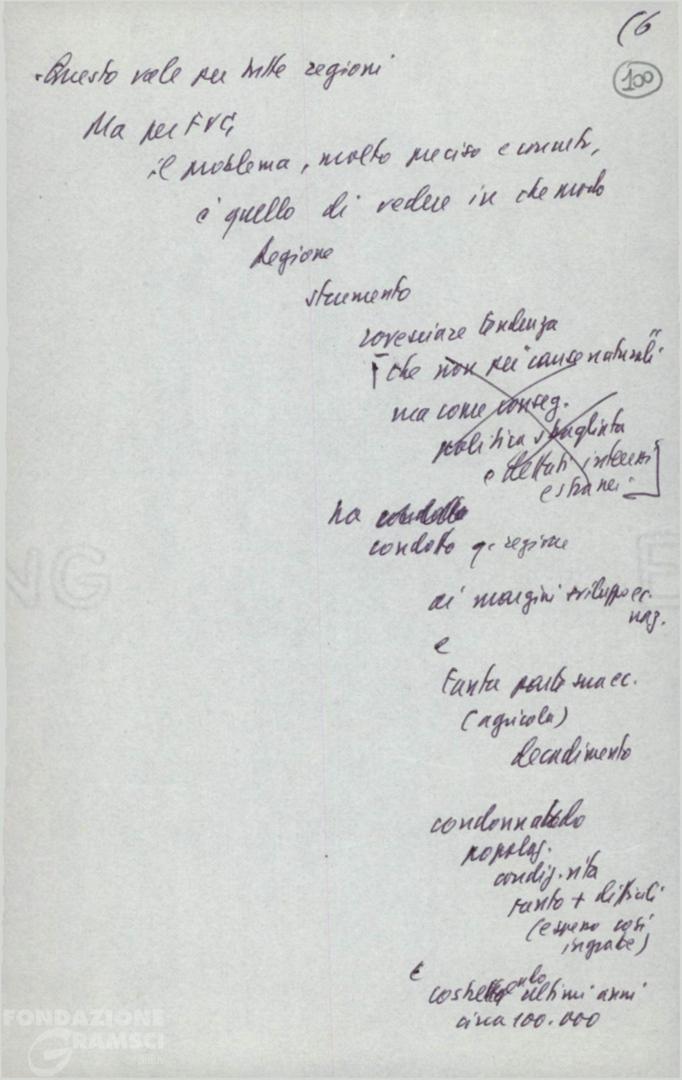 (6
100
- Questo vale per tutte regioni
Ma per FVG,
il problema, molto preciso e concreto,
è quello di vedere in che modo
Regione
strumento
rovesciare tendenza
[che non per "cause naturali"
ma come conseg.
politica sbagliata
e dettati interessi
estranei.]
ha condotto
condotto q. regione
ai margini sviluppo ec.
naz.
e
tanta parte sua ec.
(agricola)
decadimento
condannando
popolaz.
condiz. vita
tanto + difficili
(e spesso così
ingrate)
e
costringendo ultimi anni
circa 100.000
FONDAZIONE
GRAMSCI